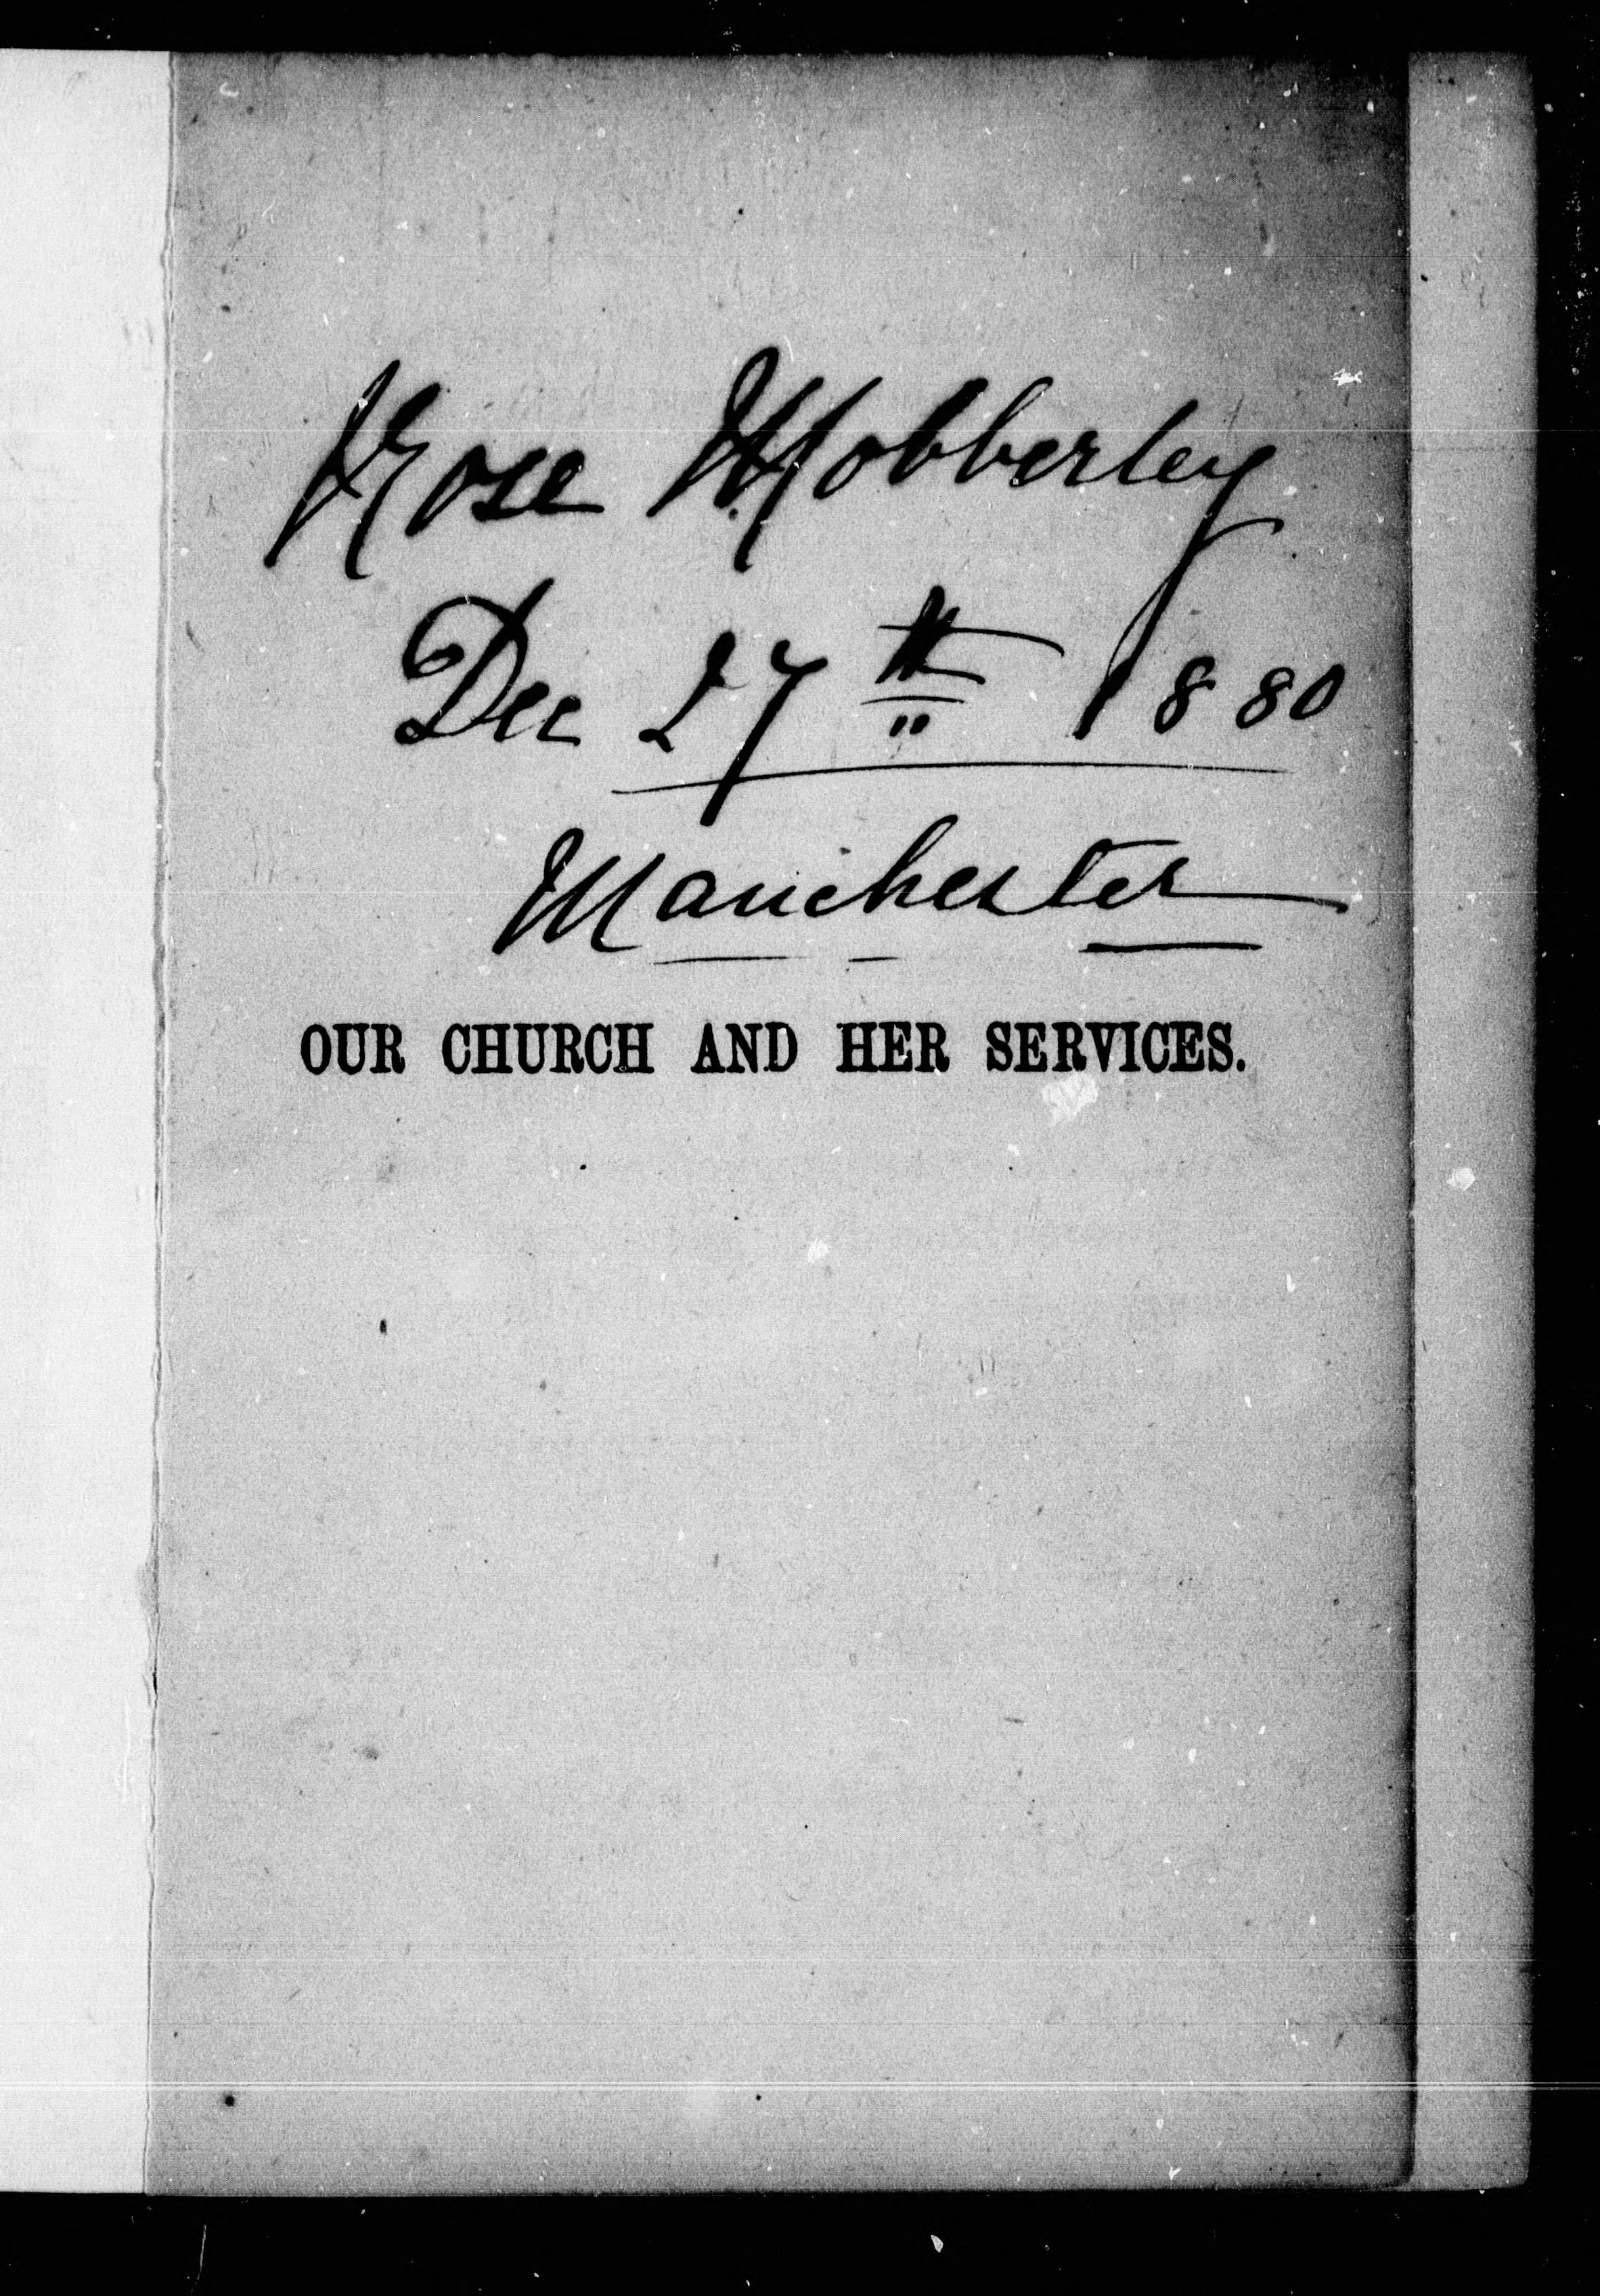 Rose Mobberley
Dec 27th 1880
Manchester
OUR CHURCH AND HER SERVICES.